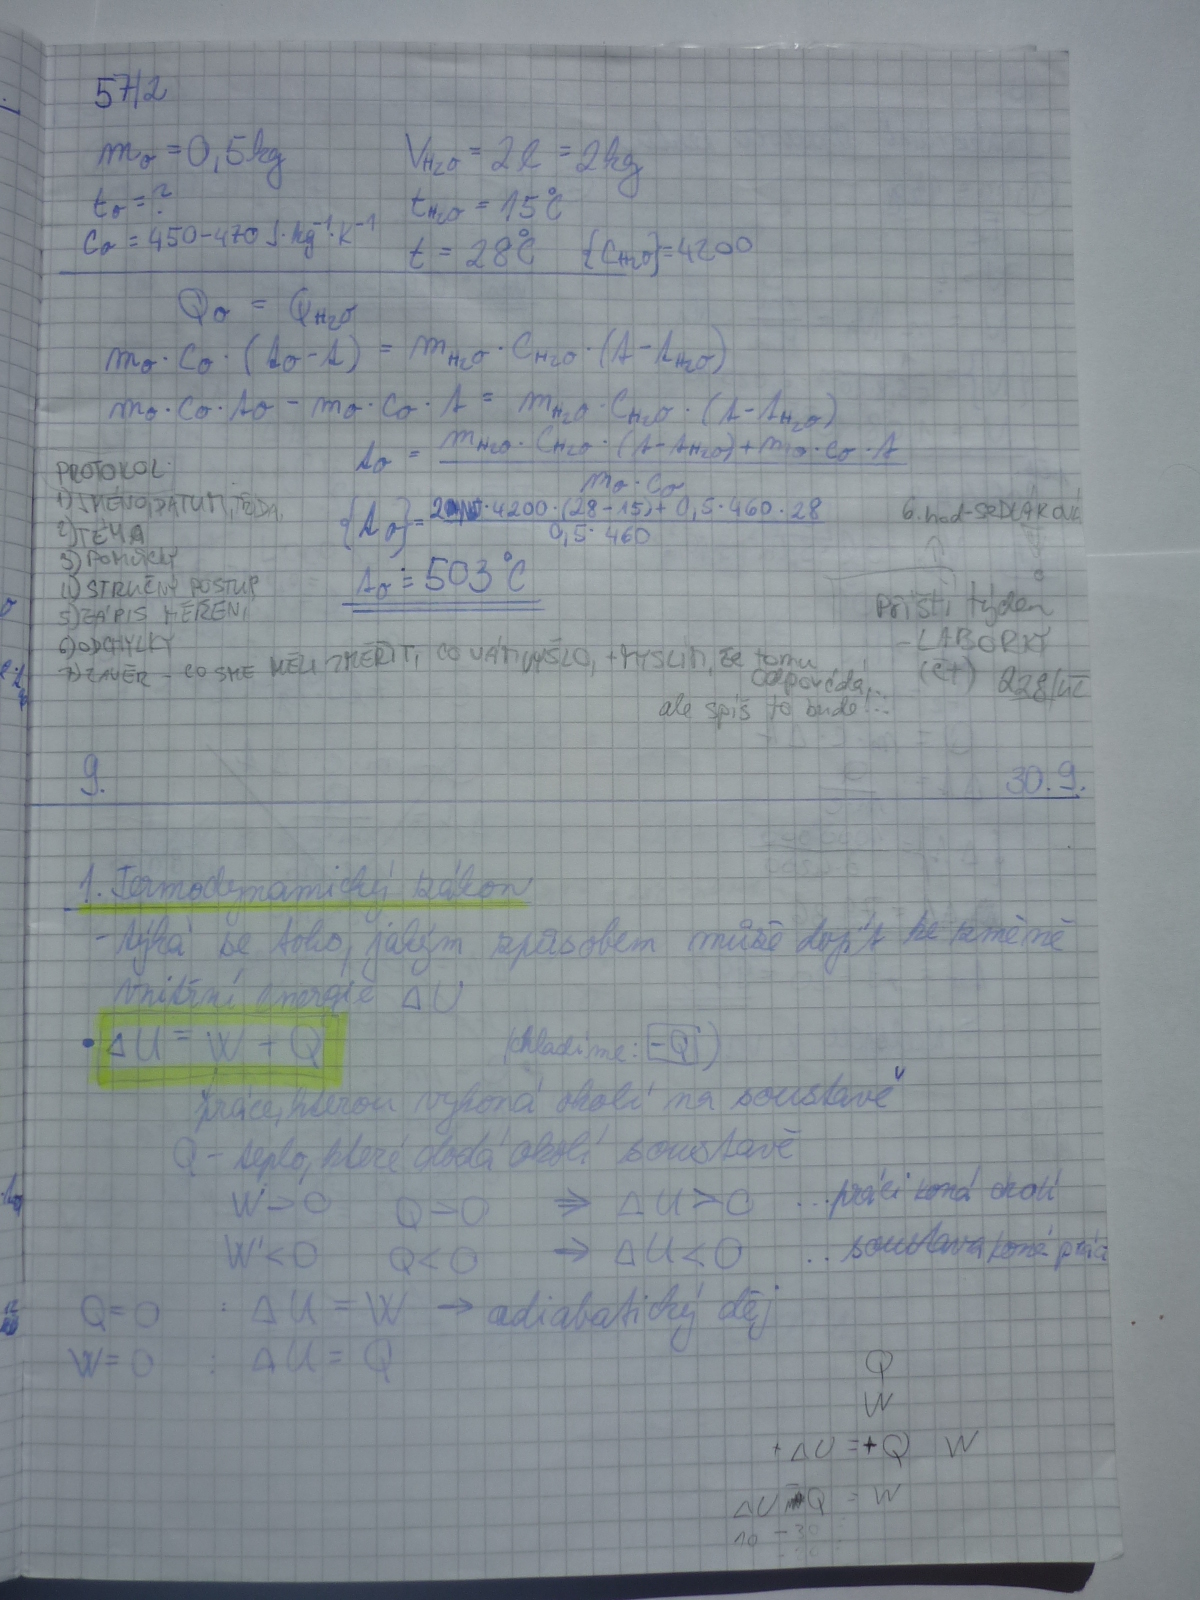 57/2
m₀ = 0,5kg
t₀ = ?
c₀ = 450-470 J·kg⁻¹·K⁻¹
V_H₂O = 2l = 2kg
t_H₂O = 15°C
t = 28°C {c_H₂O} = 4200
Q₀ = Q_H₂O
m₀·c₀·(t₀-t) = m_H₂O·c_H₂O·(t-t_H₂O)
m₀·c₀·t₀ - m₀·c₀·t = m_H₂O·c_H₂O·(t-t_H₂O)
t₀ = m_H₂O·c_H₂O·(t-t_H₂O)+m₀·c₀·t
m₀·c₀
·4200·(28-15)+0,5·460·28
{t₀} =
0,5·460
t₀ = 503°C
PROTOKOL:
1) JMÉNO, DATUM, TŘÍDA,
2) TÉMA
3) POMŮCKY
4) STRUČNÝ POSTUP
5) ZÁPIS MĚŘENÍ
6) ODCHYLKY
7) ZÁVĚR - CO SME MĚLI ZMĚŘIT, CO VÁM VYŠLO, + MYSLÍM, že tomu
odpovídá,..
ale spíš to bude...
6. hod - SEDLÁKOVÁ
Příští týden
- LABORKY
(čt) 228/
9. 30.9.
1. Termodynamický zákon
- týká se toho, jakým způsobem může dojít ke změně
vnitřní energie ΔU
• ΔU = W + Q (chladíme: -Q)
práce, kterou vykoná okolí na soustavě
Q - teplo, které dodá okolí soustavě
W > 0 Q > 0 ⇒ ΔU > 0 ...práci koná okolí
W < 0 Q < 0 → ΔU < 0 ...soustava koná práci
Q = 0 : ΔU = W → adiabatický děj
W = 0 : ΔU = Q
Q
W
+ ΔU = +Q W
ΔU Q = W
10 - 30